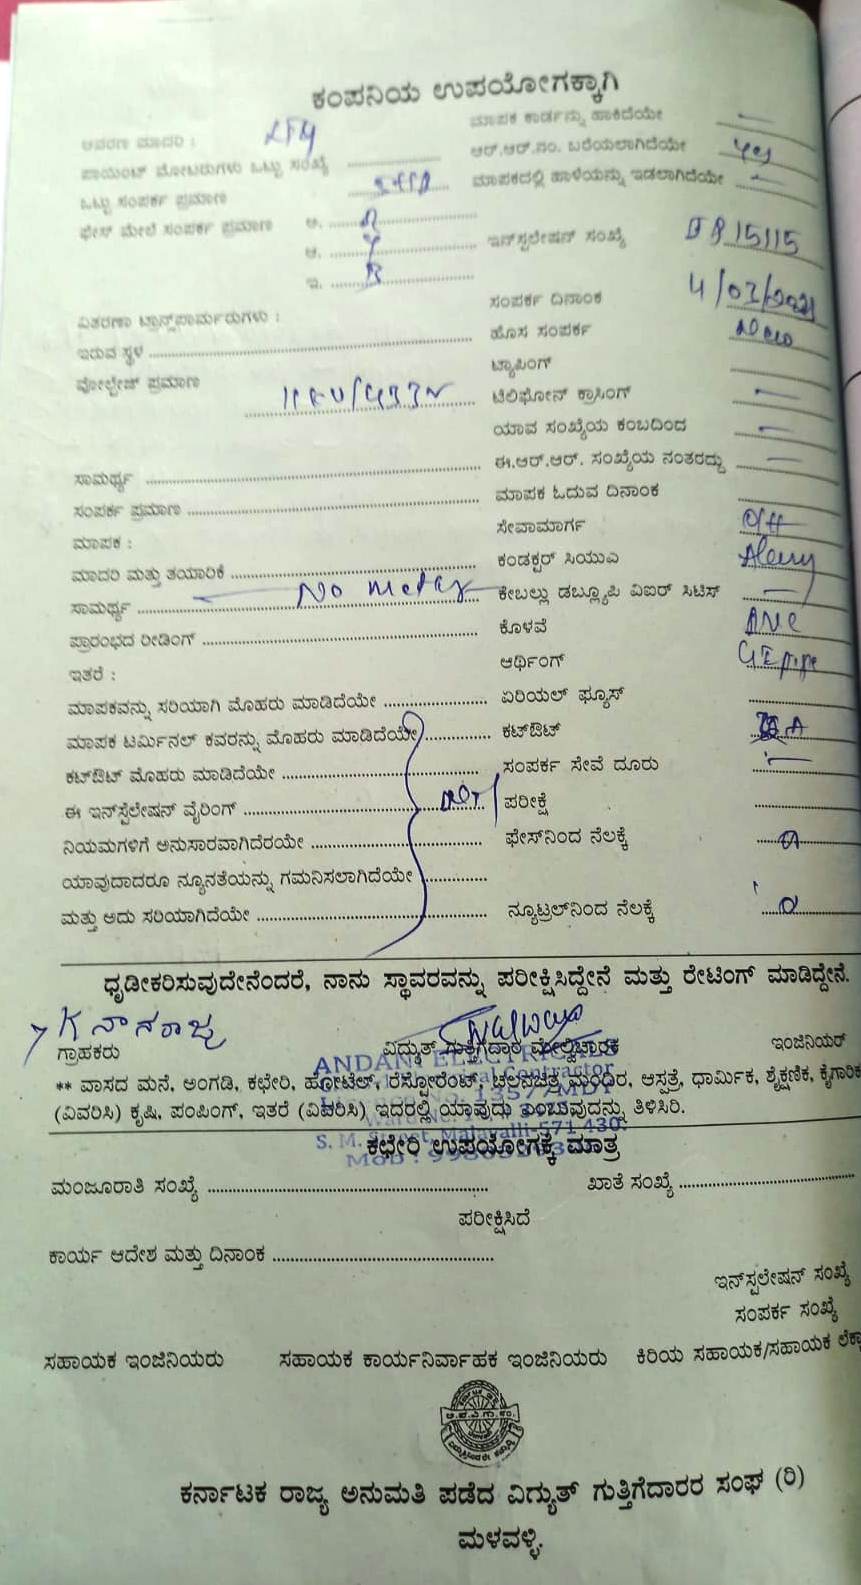 ಕಂಪನಿಯ ಉಪಯೋಗಕ್ಕಾಗಿ
ಆವರಣ ಮಾದರಿ :
ಮಾಪಕ ಕಾರ್ಡನ್ನು ಹಾಕಿದೆಯೇ
ಪಾಯಿಂಟ್ ಮೋಟರುಗಳು ಒಟ್ಟು ಸಂಖ್ಯೆ
ಆರ್.ಆರ್.ನಂ. ಬರೆಯಲಾಗಿದೆಯೇ Yes
ಒಟ್ಟು ಸಂಪರ್ಕ ಪ್ರಮಾಣ
ಮಾಪಕದಲ್ಲಿ ಹಾಳೆಯನ್ನು ಇಡಲಾಗಿದೆಯೇ
ಫೇಸ್ ಮೇಲೆ ಸಂಪರ್ಕ ಪ್ರಮಾಣ ಅ. R
ಆ. Y ಇನ್‌ಸ್ಟಲೇಷನ್ ಸಂಖ್ಯೆ 15115
ಇ. B
ಸಂಪರ್ಕ ದಿನಾಂಕ 4/03/2021
ವಿತರಣಾ ಟ್ರಾನ್ಸ್‌ಫಾರ್ಮರುಗಳು :
ಹೊಸ ಸಂಪರ್ಕ
ಇರುವ ಸ್ಥಳ
ಟ್ಯಾಪಿಂಗ್
ವೋಲ್ಟೇಜ್ ಪ್ರಮಾಣ 11KV/433V
ಟೆಲಿಫೋನ್ ಕ್ರಾಸಿಂಗ್
ಯಾವ ಸಂಖ್ಯೆಯ ಕಂಬದಿಂದ
ಸಾಮರ್ಥ್ಯ
ಈ.ಆರ್.ಆರ್. ಸಂಖ್ಯೆಯ ನಂತರದ್ದು
ಸಂಪರ್ಕ ಪ್ರಮಾಣ
ಮಾಪಕ ಓದುವ ದಿನಾಂಕ
ಮಾಪಕ :
ಸೇವಾಮಾರ್ಗ O/H
ಮಾದರಿ ಮತ್ತು ತಯಾರಿಕೆ
ಕಂಡಕ್ಟರ್ ಸಿಯುಎ
ಸಾಮರ್ಥ್ಯ No meter
ಕೇಬಲ್ಲು ಡಬ್ಲ್ಯೂಪಿ ವಿಐರ್ ಸಿಟಿಸ್
ಪ್ರಾರಂಭದ ರೀಡಿಂಗ್
ಕೊಳವೆ PVC
ಇತರೆ :
ಆರ್ಥಿಂಗ್ GI pipe
ಮಾಪಕವನ್ನು ಸರಿಯಾಗಿ ಮೊಹರು ಮಾಡಿದೆಯೇ
ಏರಿಯಲ್ ಫ್ಯೂಸ್
ಮಾಪಕ ಟರ್ಮಿನಲ್ ಕವರನ್ನು ಮೊಹರು ಮಾಡಿದೆಯೇ
ಕಟ್‌ಔಟ್
ಕಟ್‌ಔಟ್ ಮೊಹರು ಮಾಡಿದೆಯೇ
ಸಂಪರ್ಕ ಸೇವೆ ದೂರು
ಈ ಇನ್‌ಸ್ಟೆಲೇಷನ್ ವೈರಿಂಗ್
ಪರೀಕ್ಷೆ
ನಿಯಮಗಳಿಗೆ ಅನುಸಾರವಾಗಿದೆರಯೇ
ಫೇಸ್‌ನಿಂದ ನೆಲಕ್ಕೆ
ಯಾವುದಾದರೂ ನ್ಯೂನತೆಯನ್ನು ಗಮನಿಸಲಾಗಿದೆಯೇ
ಮತ್ತು ಅದು ಸರಿಯಾಗಿದೆಯೇ
ನ್ಯೂಟ್ರಲ್‌ನಿಂದ ನೆಲಕ್ಕೆ
ಧೃಡೀಕರಿಸುವುದೇನೆಂದರೆ, ನಾನು ಸ್ಥಾವರವನ್ನು ಪರೀಕ್ಷಿಸಿದ್ದೇನೆ ಮತ್ತು ರೇಟಿಂಗ್ ಮಾಡಿದ್ದೇನೆ.
K ನಾಗರಾಜು
ಗ್ರಾಹಕರು
ವಿದ್ಯುತ್ ಗುತ್ತಿಗೆದಾರ ಮೇಲ್ವಿಚಾರಕ
ಇಂಜಿನಿಯರ್
ANDANI ELECTRICALS
** ವಾಸದ ಮನೆ, ಅಂಗಡಿ, ಕಛೇರಿ, ಹೋಟೆಲ್, ರೆಸ್ಟೋರೆಂಟ್, ಚಲನಚಿತ್ರ ಮಂದಿರ, ಆಸ್ಪತ್ರೆ, ಧಾರ್ಮಿಕ, ಶೈಕ್ಷಣಿಕ, ಕೈಗಾರಿಕ
(ವಿವರಿಸಿ) ಕೃಷಿ, ಪಂಪಿಂಗ್, ಇತರೆ (ವಿವರಿಸಿ) ಇದರಲ್ಲಿ ಯಾವುದು ಎಂಬುವುದನ್ನು ತಿಳಿಸಿರಿ.
S. M. Street, Malavalli-571 430.
ಕಛೇರಿ ಉಪಯೋಗಕ್ಕೆ ಮಾತ್ರ
ಮಂಜೂರಾತಿ ಸಂಖ್ಯೆ
ಖಾತೆ ಸಂಖ್ಯೆ
ಪರೀಕ್ಷಿಸಿದೆ
ಕಾರ್ಯ ಆದೇಶ ಮತ್ತು ದಿನಾಂಕ
ಇನ್‌ಸ್ಪಲೇಷನ್ ಸಂಖ್ಯೆ
ಸಂಪರ್ಕ ಸಂಖ್ಯೆ
ಸಹಾಯಕ ಇಂಜಿನಿಯರು ಸಹಾಯಕ ಕಾರ್ಯನಿರ್ವಾಹಕ ಇಂಜಿನಿಯರು ಕಿರಿಯ ಸಹಾಯಕ/ಸಹಾಯಕ
ಕರ್ನಾಟಕ ರಾಜ್ಯ ಅನುಮತಿ ಪಡೆದ ವಿದ್ಯುತ್ ಗುತ್ತಿಗೆದಾರರ ಸಂಘ (ರಿ)
ಮಳವಳ್ಳಿ.